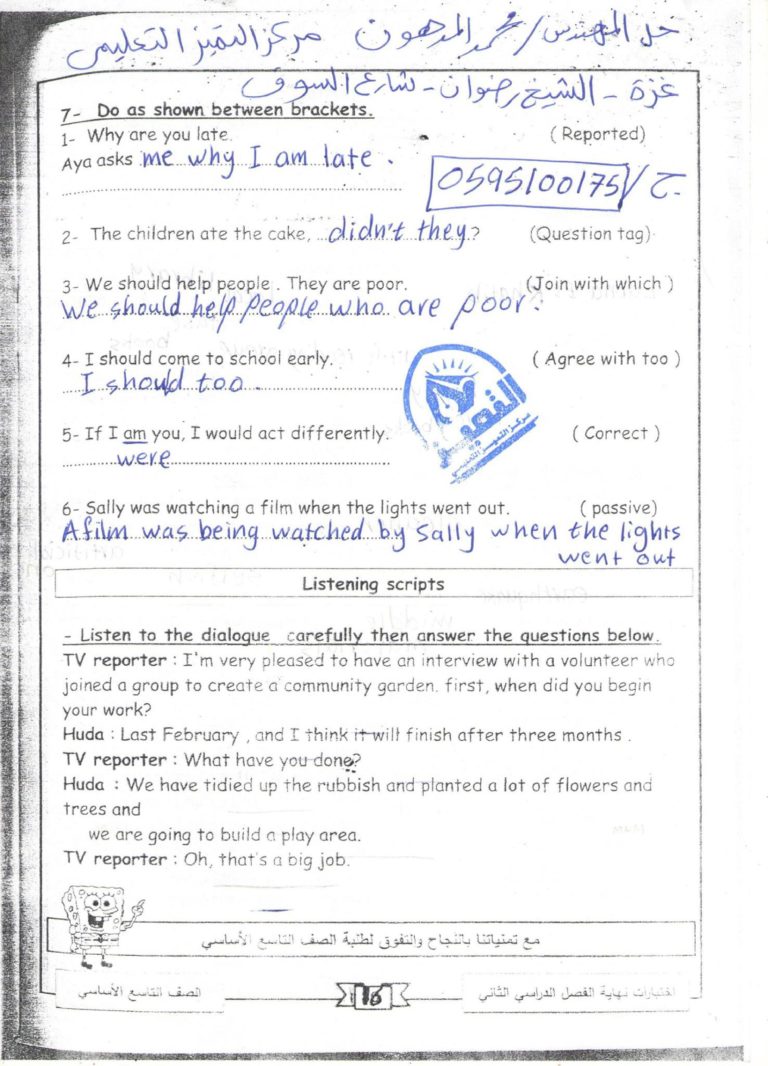 حل المهندس / محمد المدهون مركز التميز التعليمي
غزة - الشيخ رضوان - شارع السوق
7- Do as shown between brackets.
1- Why are you late. ( Reported)
Aya asks me why I am late.
ج/ 0595100175
2- The children ate the cake, didn't they? (Question tag)
3- We should help people . They are poor. (Join with which )
We should help people who are poor.
4- I should come to school early. ( Agree with too )
I should too.
مركز التميز التعليمي
5- If I am you, I would act differently. ( Correct )
were
6- Sally was watching a film when the lights went out. ( passive)
A film was being watched by Sally when the lights
went out
Listening scripts
- Listen to the dialogue carefully then answer the questions below.
TV reporter : I'm very pleased to have an interview with a volunteer who
joined a group to create a community garden. first, when did you begin
your work?
Huda : Last February , and I think it will finish after three months .
TV reporter : What have you done?
Huda : We have tidied up the rubbish and planted a lot of flowers and
trees and
we are going to build a play area.
TV reporter : Oh, that's a big job.
مع تمنياتنا بالنجاح والتفوق لطلبة الصف التاسع الأساسي
اختبارات نهاية الفصل الدراسي الثاني 16 الصف التاسع الأساسي